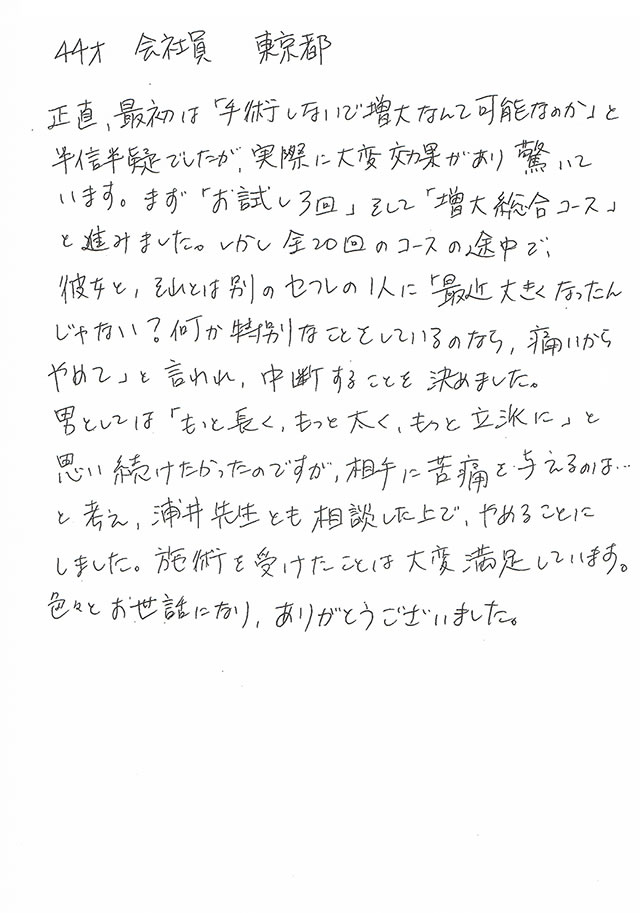 44才 会社員 東京都
正直、最初は「手術しないで増大なんて可能なのか」と
半信半疑でしたが、実際に大変効果があり驚いて
います。まず「お試し3回」そして「増大総合コース」
と進みました。しかし全20回のコースの途中で、
彼女と、それとは別のセフレの1人に「最近大きくなったん
じゃない?何か特別なことをしているのなら、痛いから
やめて」と言われ、中断することを決めました。
男としては「もっと長く、もっと太く、もっと立派に」と
思い続けたかったのですが、相手に苦痛を与えるのは…
と考え、浦井先生とも相談した上で、やめることに
しました。施術を受けたことは大変満足しています。
色々とお世話になり、ありがとうございました。